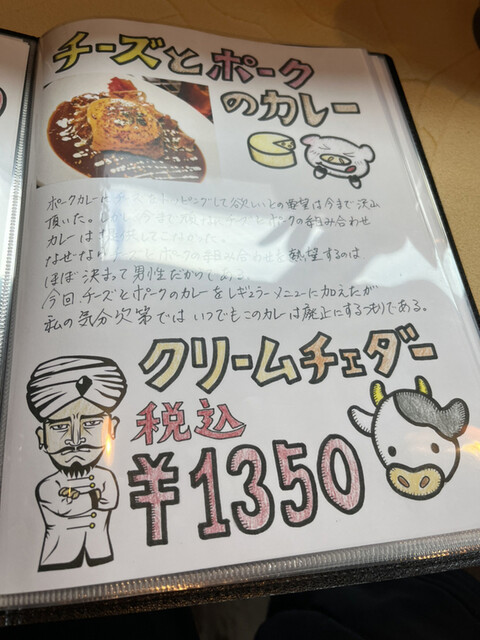 チーズとポーク
のカレー
ポークカレーにチーズをトッピングして欲しいとの要望は今まで沢山
頂いた。しかし今まで頂いた、チーズとポークの組み合わせ
カレーは提供してこなかった。
なぜならチーズとポークの組み合わせを熱望するのは
ほぼ決まって男性だからである。
今回、チーズとポークのカレーをレギュラーメニューに加えたが
私の気分次第ではいつでもこのカレーは廃止にするつもりである。
クリームチェダー
税込
¥1350